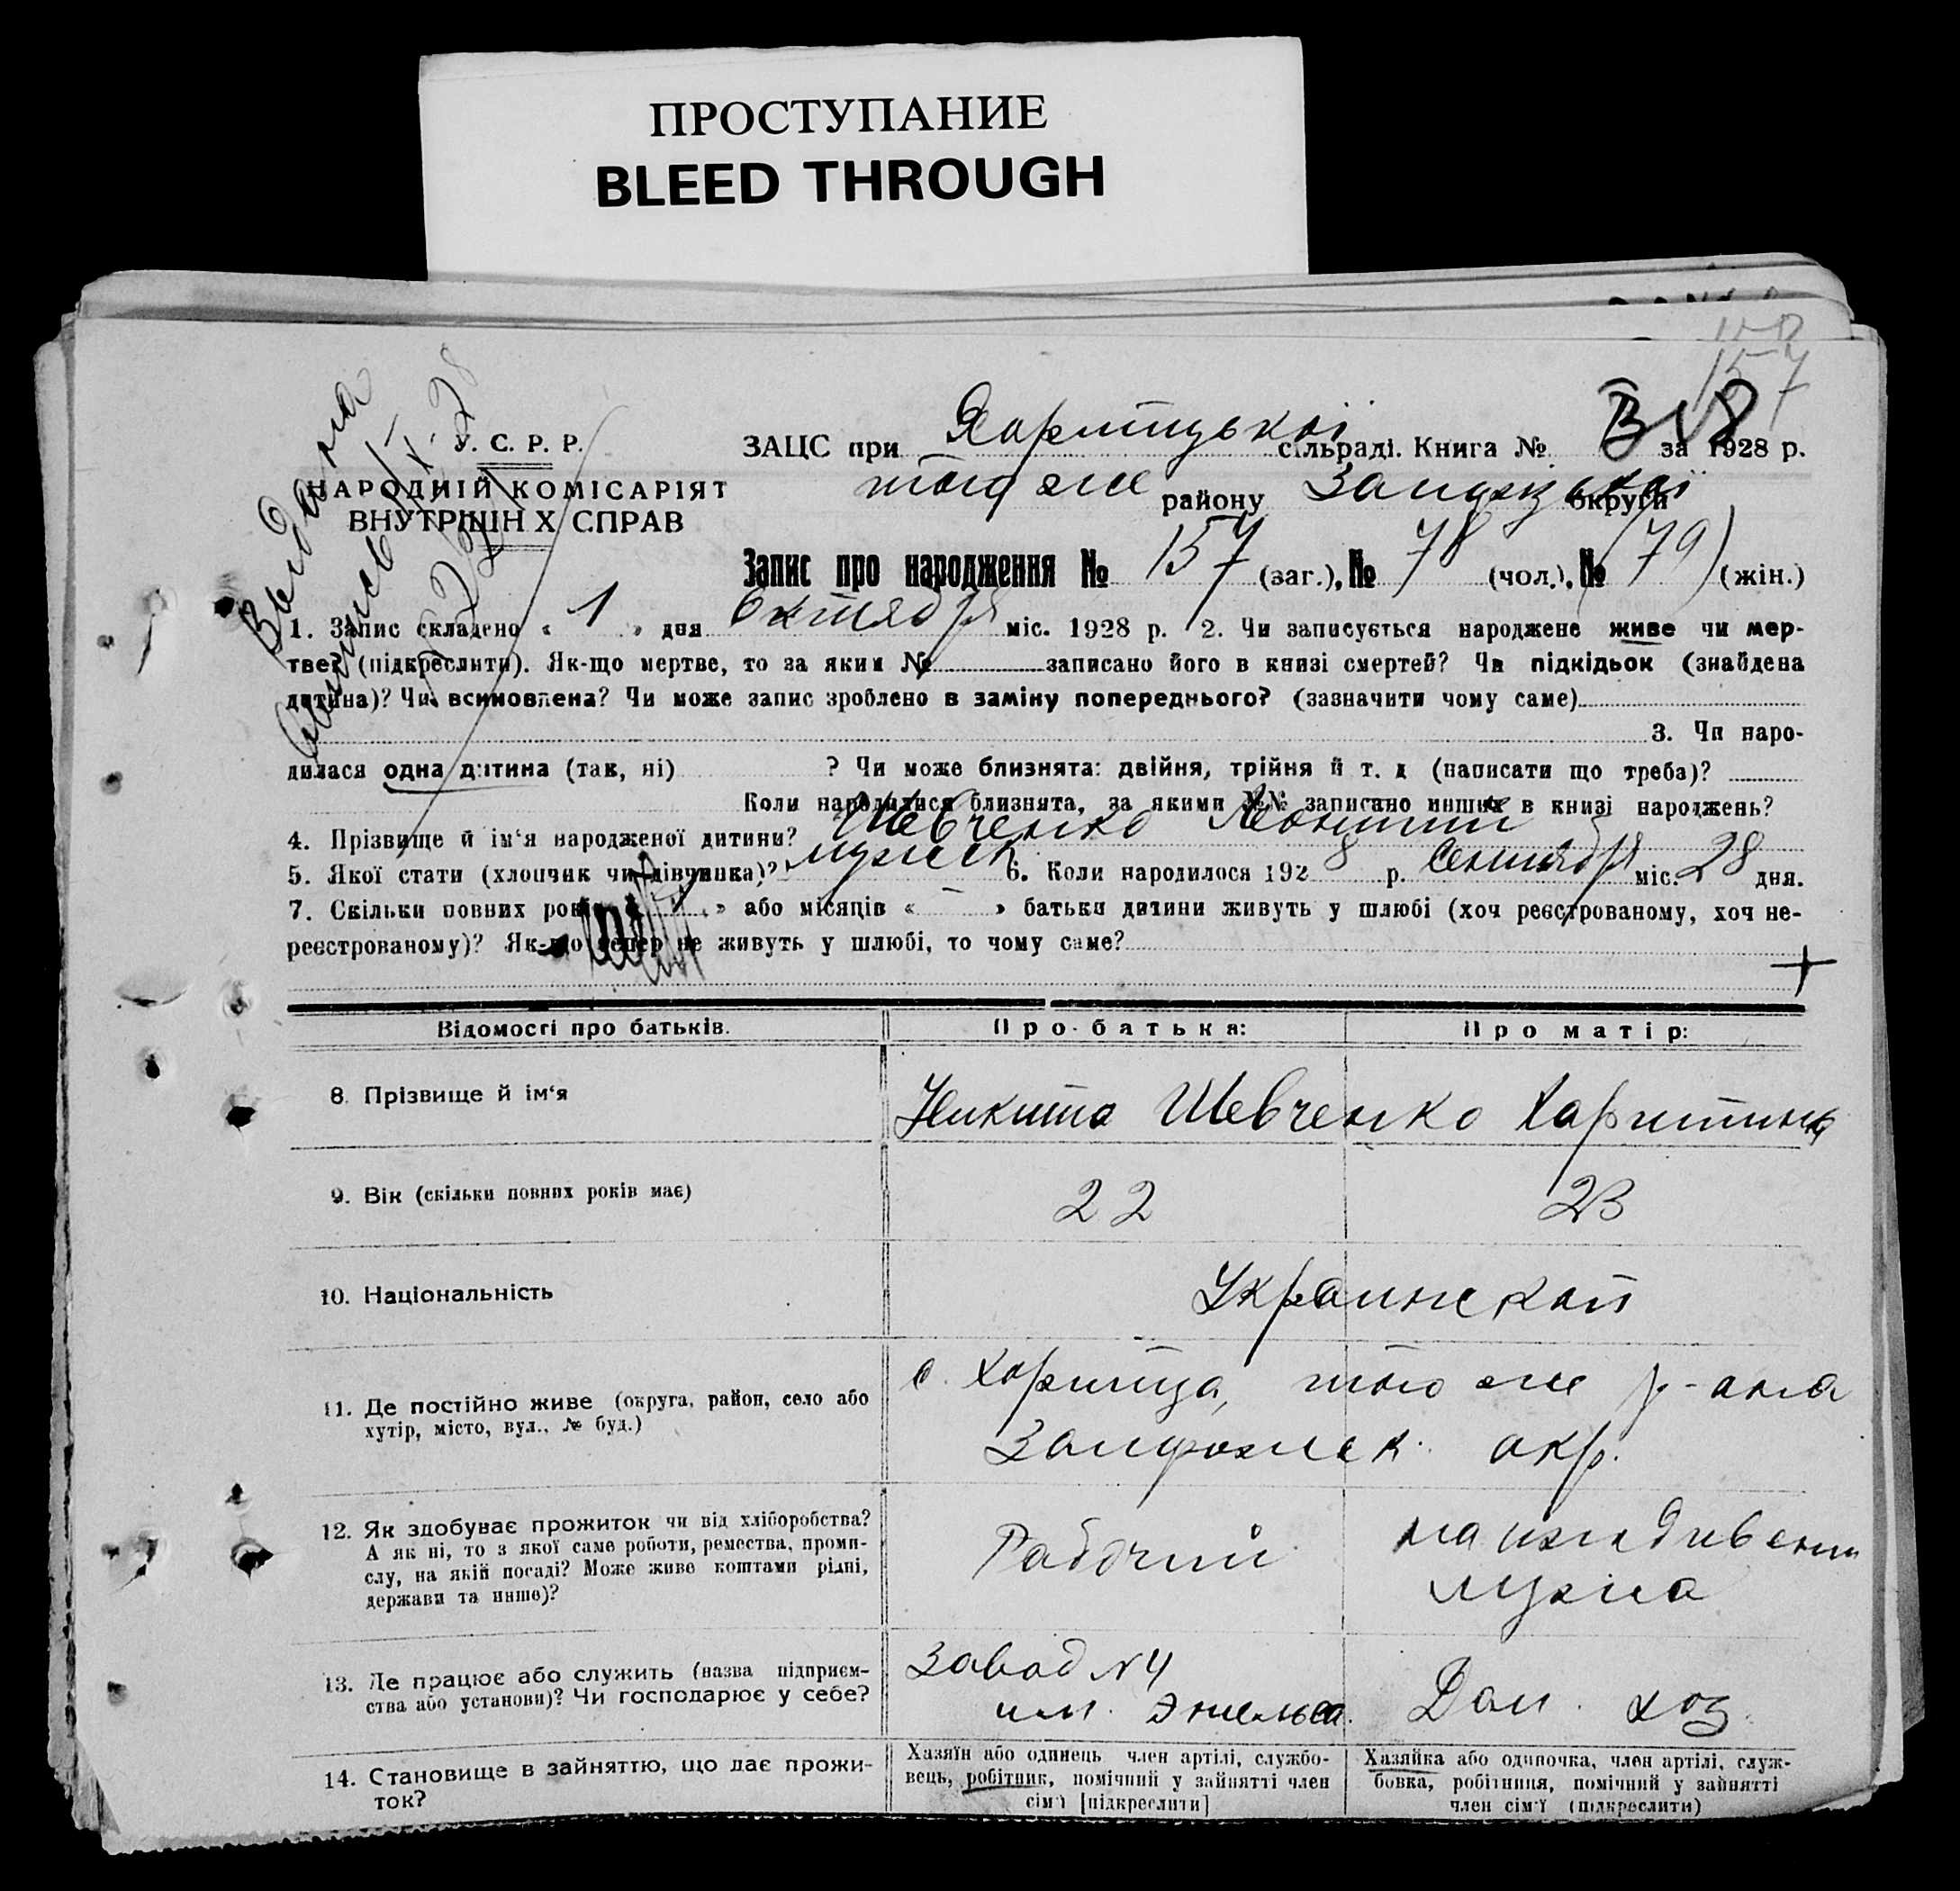 ПРОСТУПАНИЕ
BLEED THROUGH
157
Выдана
выпись
У. С. Р. Р.
НАРОДНІЙ КОМІСАРІЯТ
ВНУТРІШНІХ СПРАВ
ЗАЦС при Хортицькоі сільраді. Книга № за 1928 р.
того же району округи
Запис про народження № 157 (заг.), № 78 (чол.), № 79) (жін.)
1. Запис складено « 1 » дня Октября міс. 1928 р. 2. Чи записується народжене живе чи мер-
тве? (підкреслити). Як-що мертве, то за яким № записано його в книзі смертей? Чи підкідьок (знайдена
дитина)? Чи всиновлена? Чи може запис зроблено в заміну попереднього? (зазначити чому саме)
3. Чи наро-
дилася одна дитина (так, ні) ? Чи може близнята: двійня, трійня й т. д (написати що треба)?
Коли народилися близнята, за якими №№ записано инших в книзі народжень?
4. Прізвище й ім'я народженої дитини? Шевченко Леонтий
5. Якої стати (хлопчик чи дівчинка)? мужск 6. Коли народилося 1928 р. Сентября міс. 28 дня.
7. Скільки повних років » або місяців « — » батьки дитини живуть у шлюбі (хоч реєстрованому, хоч не-
реєстрованому)? Як-що тепер не живуть у шлюбі, то чому саме?
Відомості про батьків. Про батька: Про матір:
8. Прізвище й ім'я Никита Шевченко Харитина
9. Вік (скільки повних років має) 22 23
10. Національність Украинской
11. Де постійно живе (округа, район, село або
хутір, місто, вул., № буд.)
с. Хортица, того же р-она
Запорожск. окр.
12. Як здобуває прожиток чи від хліборобства?
А як ні, то з якої саме роботи, ремества, проми-
слу, на якій посаді? Може живе коштами рідні,
держави та инше)?
Рабочий
на иждивении
мужа
13. Де працює або служить (назва підприєм-
ства або установи)? Чи господарює у себе?
Завод N4
им. Энгельса.
Дом. хоз.
14. Становище в зайняттю, що дає прожи-
ток?
Хазяїн або одинець член артілі, службо-
вець, робітник, помічний у зайнятті член
сім'ї [підкреслити]
Хазяйка або одиночка, член артілі, служ-
бовка, робітниця, помічний у зайнятті
член сім'ї (підкреслити)